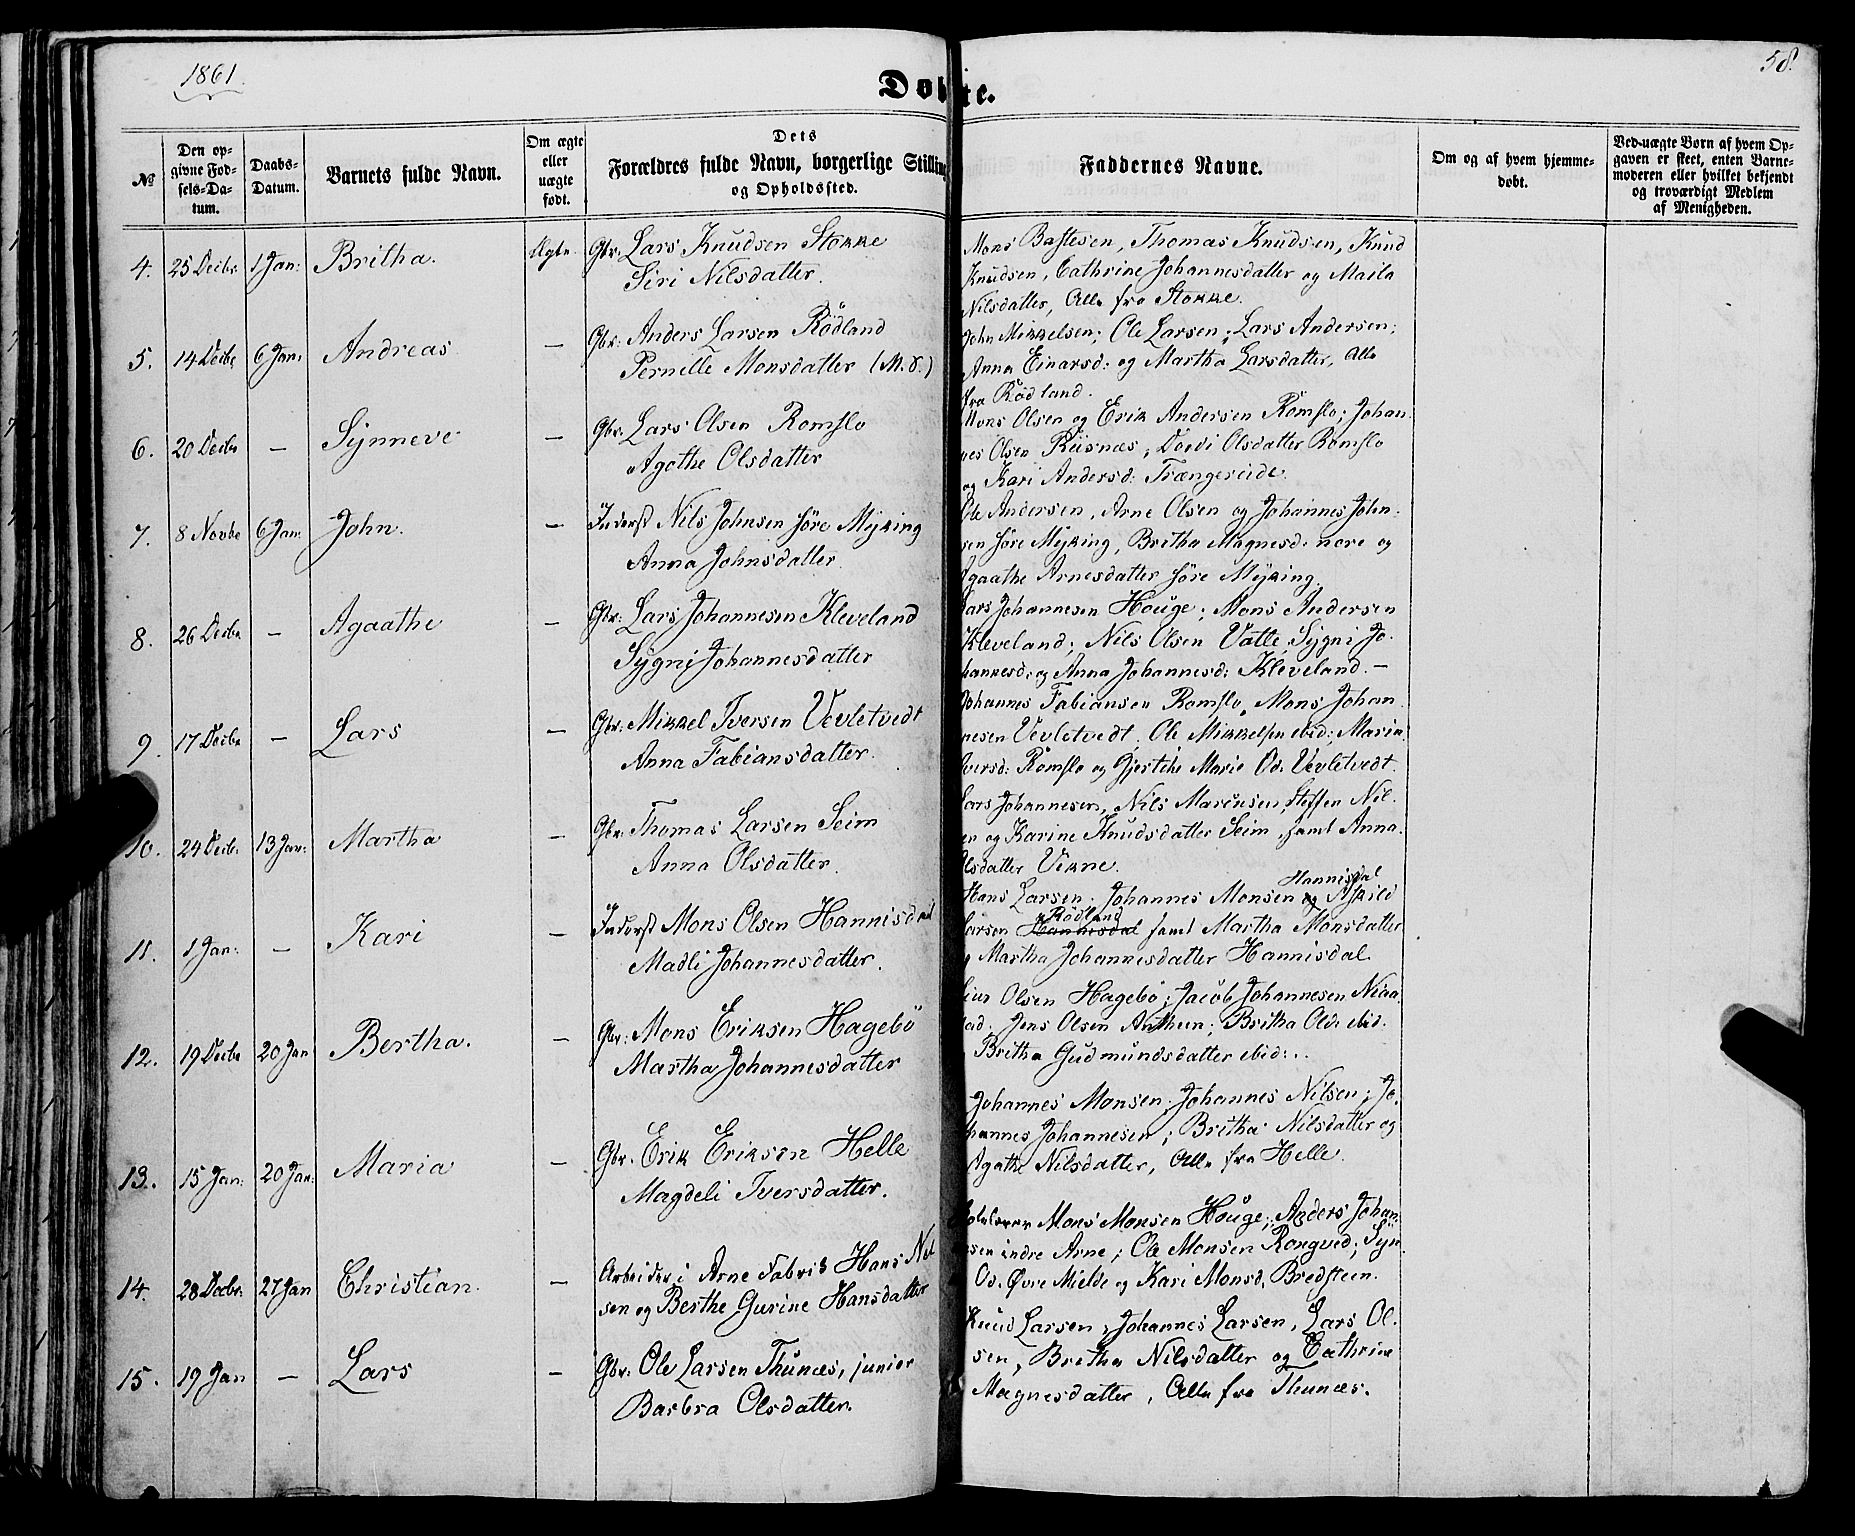 1861.
58.
Døbte.
№
Den opgivne Fødsels-Datum.
Daabs-Datum.
Barnets fulde Navn.
Om ægte eller uægte født.
Dets Forældres fulde Navn, borgerlige Stilling og Opholdssted.
Faddernes Navne.
Om og af hvem hjemmedøbt.
Ved uægte Børn af hvem Opgaven er skeet, enten Barnemoderen eller hvilket bekjendt og troværdigt Medlem af Menigheden.
4. 25 Decbr 1 Jan: Britha. Ægte. Gbr. Lars Knudsen Stokke
Siri Nilsdatter.
Mons Bastesen, Thomas Knudsen, Knud
Knudsen, Cathrine Johannesdatter og Maila
Nilsdatter, Alle fra Stokke.
5. 14 Decbr 6 Jan: Andreas — Gbr: Anders Larsen Rödland
Pernille Monsdatter (M.S.)
John Mikkelsen; Ole Larsen; Lars Andersen;
Anna Einarsd: og Martha Larsdatter, Alle
fra Rödland.
6. 20 Decbr — Synneve — Gbr. Lars Olsen Romslo
Agathe Olsdatter
Mons Olsen og Erik Andersen Romslo; Johan
nes Olsen Riisnæs, Dordi Olsdatter Romslo
og Kari Andersd: Trængereide.
7. 8 Novbr 6 Jan: John. — Inderst Nils Johnsen söre Myking
Anna Johnsdatter.
Ole Andersen, Arne Olsen og Johannes John
sen söre Myking, Britha Magnesd: nore og
Agaathe Arnesdatter söre Myking.
8. 26 Decbr — Agaathe — Gbr: Lars Johannesen Kleveland
Sygni Johannesdatter
Lars Johannesen Houge; Mons Andersen
Kleveland; Nils Olsen Vatle, Sygni Jo-
hannesd: og Anna Johannesd: Kleveland. —
9. 17 Decbr — Lars — Gbr: Mikkel Iversen Vevletvedt
Anna Fabiansdatter.
Johannes Fabiansen Romslo, Mons Johan
nesen Vevletvedt, Ole Mikkelsen ibid; Maria
Iversd: Romslo og Gjertine Marie Od: Vevletvedt.
10. 24 Decbr. 13 Jan: Martha — Gbr. Thomas Larsen Seim
Anna Olsdatter.
Lars Johannesen, Nils Marensen, Steffen Nil-
sen og Karine Knudsdatter Seim, samt Anna
Olsdatter Vikne.
11. 1 Jan: — Kari — Inderst Mons Olsen Hannisdal
Madli Johannesdatter.
Hannisdal
Hans Larsen, Johannes Monsen og Askild
Rödland
Larsen Hannesdal samt Martha Monsdatter
Martha Johannesdatter Hannisdal.
12. 19 Decbr 20 Jan Bertha. — Gbr: Mons Eriksen Hagebö
Martha Johannesdatter
Olsen Hagebö; Jacob Johannesen
Jens Olsen Anthun; Britha Olsd: ibid.
Britha Gudmundsdatter ibid: .
13. 15 Jan: 20 Jan: Maria — Gbr. Erik Eriksen Helle
Magdeli Iversdatter.
Johannes Monsen, Johannes Nilsen; Jo-
hannes Johannesen; Britha Nilsdatter og
Agathe Nilsdatter, Alle fra Helle.
14. 28 Decbr. 27 Jan Christian. — Arbeider i Arne Fabrik Hans Nil
sen og Berthe Gurine Hansdatter
Mons Monsen Houge; Anders Johan
sen indre Arne; Ole Monsen Rongved; Syn
Od. Øvre Mielde og Kari Monsd, Bredsteen.
15. 19 Jan — Lars — Gbr: Ole Larsen Thunæs, junior
Barbra Olsdatter.
Knud Larsen, Johannes Larsen, Lars Ol-
sen, Britha Nilsdatter og Cathrine
Magnesdatter, Alle fra Thunæs.